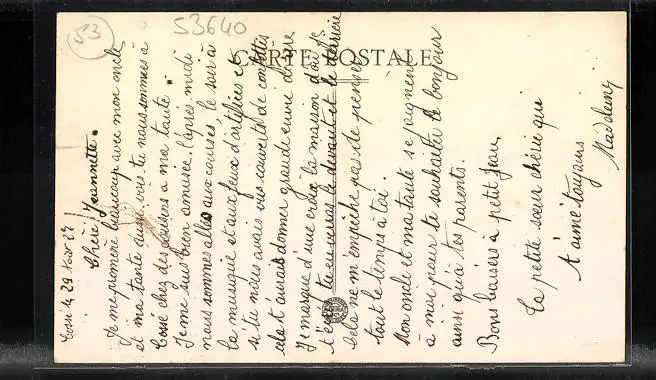 53
53640
CARTE POSTALE
Cossé le 29 27
Chère Jeannette.
Je me promène beaucoup avec mon oncle
et ma tante aussi vois tu nous sommes à
Cossé chez des cousins à ma tante.
Je me suis bien amusée l'après-midi
nous sommes allés aux courses le soir à
la musique et aux feux d'artifices et
si tu nous avais vus couverts de confettis
cela t'aurais donner grande envie de rire
Je marque d'une croix la maison d'où je
t'écris tu en verras le devant et le derrière
Cela ne m'empêche pas de penser
tout le temps à toi.
Mon oncle et ma tante se joignent
à moi pour te souhaiter le bonjour
ainsi qu'à tes parents.
Bons baisers à petit Jean,
Ta petite sœur chérie qui
t'aime toujours
Madeleine